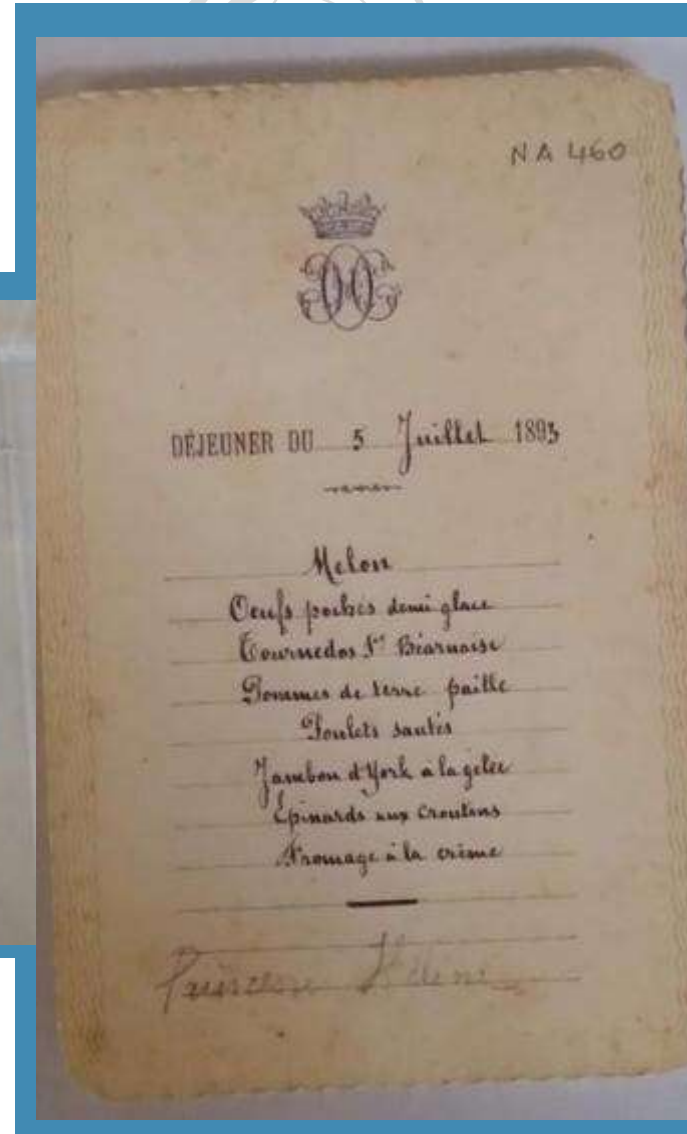 NA 460
DÉJEUNER DU 5 Juillet 1893
Melon
Oeufs pochés demi glace
Tournedos Sce Béarnaise
Pommes de terre paille
Poulets sautés
Jambon d'York a la gelée
Épinards aux Croutons
Fromage à la crème
Princesse Hélène